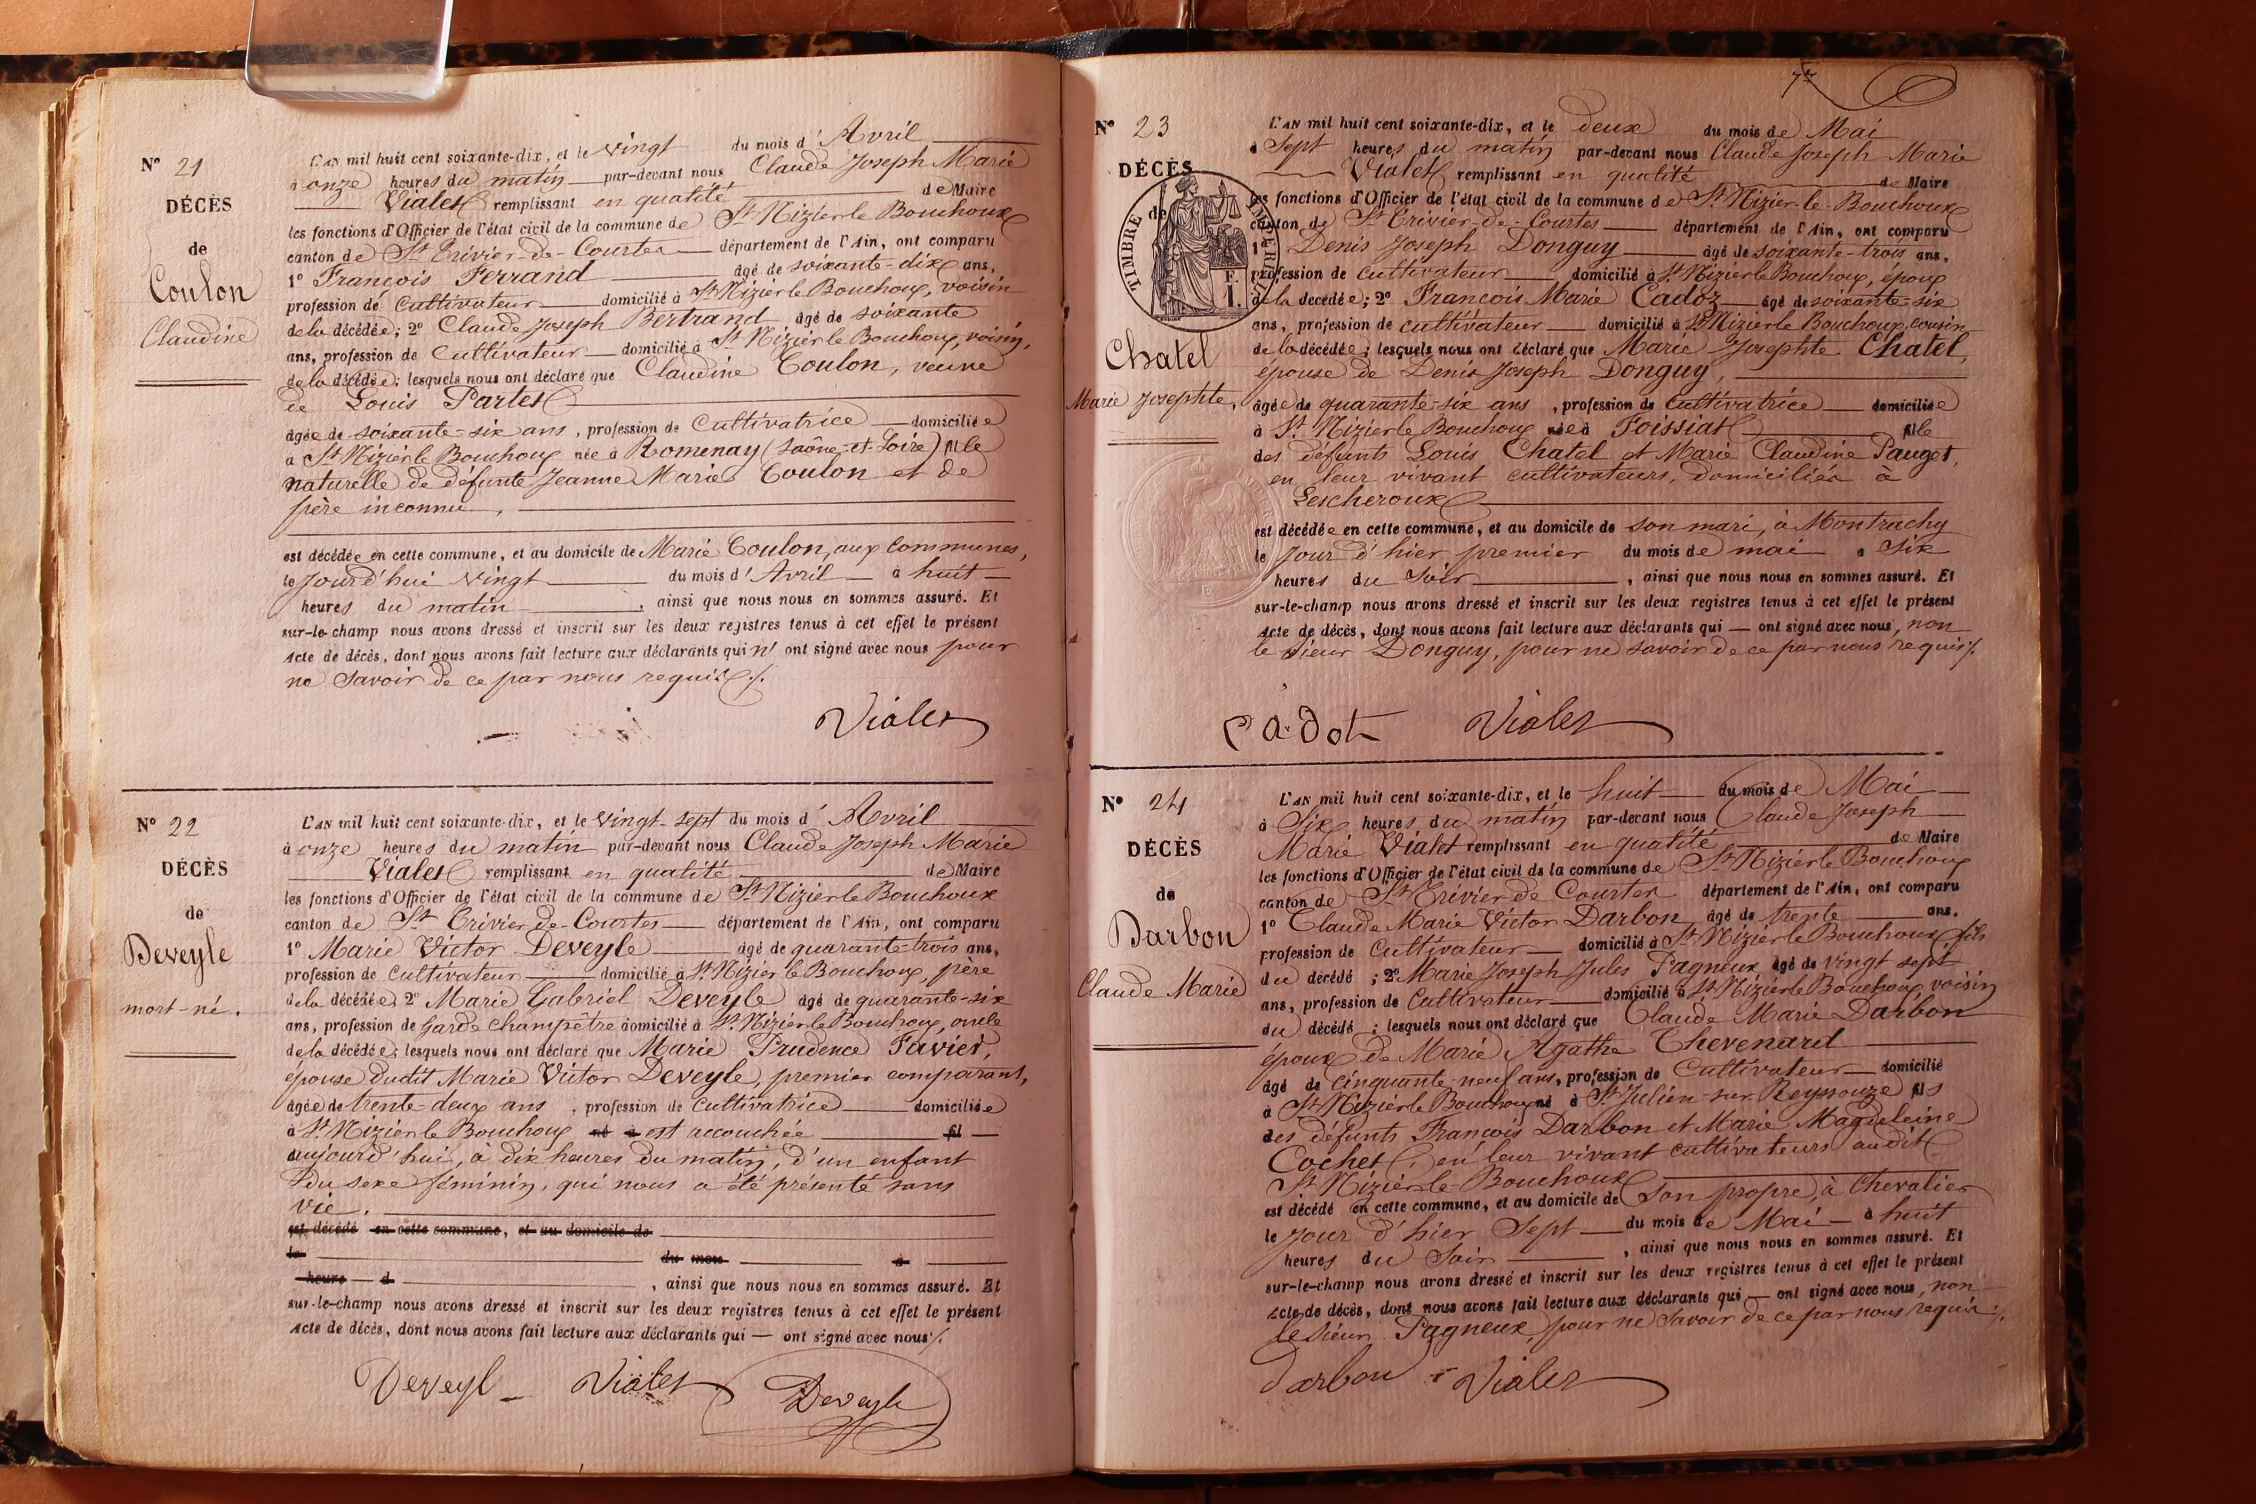 N° 21
DÉCÈS
de
Coulon
Claudine
L'AN mil huit cent soixante-dix, et le vingt du mois d'Avril
à onze heures du matin par-devant nous Claude Joseph Marie
Vialet remplissant en qualité de Maire
les fonctions d'Officier de l'état civil de la commune de St Nizier le Bouchoux
canton de St Trivier-de-Courtes département de l'Ain, ont comparu
1° François Ferrand âgé de soixante-dix ans,
profession de Cultivateur domicilié à St Nizier le Bouchoux, voisin
de la décédée; 2° Claude Joseph Bertrand âgé de soixante
ans, profession de Cultivateur domicilié à St Nizier le Bouchoux, voisin,
de la décédée; lesquels nous ont déclaré que Claudine Coulon, veuve
de Louis Parlet
âgée de soixante-six ans, profession de Cultivatrice domiciliée
à St Nizier le Bouchoux née à Romenay (Saône-et-Loire) fille
naturelle de défunte Jeanne Marie Coulon et de
père inconnu,
est décédée en cette commune, et au domicile de Marie Coulon, aux Communes,
le Jourd'hui vingt du mois d'Avril à huit
heures du matin, ainsi que nous nous en sommes assuré. Et
sur-le-champ nous avons dressé et inscrit sur les deux registres tenus à cet effet le présent
Acte de décès, dont nous avons fait lecture aux déclarants qui n'ont signé avec nous pour
ne savoir de ce par nous requis ./.
Vialet
N° 22
DÉCÈS
de
Deveyle
mort-né.
L'AN mil huit cent soixante-dix, et le vingt-sept du mois d'Avril
à onze heures du matin par-devant nous Claude Joseph Marie
Vialet remplissant en qualité de Maire
les fonctions d'Officier de l'état civil de la commune de St Nizier le Bouchoux
canton de St Trivier-de-Courtes département de l'Ain, ont comparu
1° Marie Victor Deveyle âgé de quarante-trois ans,
profession de Cultivateur domicilié à St Nizier le Bouchoux, père
de la décédée, 2° Marie Gabriel Deveyle âgé de quarante-six
ans, profession de Garde Champêtre domicilié à St Nizier le Bouchoux, oncle
de la décédée; lesquels nous ont déclaré que Marie Prudence Favier,
épouse dudit Marie Victor Deveyle, premier comparant,
âgée de trente-deux ans, profession de Cultivatrice domiciliée
à St Nizier le Bouchoux né à est accouchée fil
aujourd'hui, à dix heures du matin, d'un enfant
du sexe féminin, qui nous a été présenté sans
vie.
est décédé en cette commune, et au domicile de
le du mois à
heure d, ainsi que nous nous en sommes assuré. Et
sur-le-champ nous avons dressé et inscrit sur les deux registres tenus à cet effet le présent
Acte de décès, dont nous avons fait lecture aux déclarants qui — ont signé avec nous ./.
Deveyl Vialet Deveyle
77
N° 23
DÉCÈS
de
TIMBRE IMPÉRIAL
1 F.
Chatel
Marie Josephte,
L'AN mil huit cent soixante-dix, et le deux du mois de Mai
à Sept heures du matin par-devant nous Claude Joseph Marie
Vialet remplissant en qualité de Maire
les fonctions d'Officier de l'état civil de la commune de St Nizier-le-Bouchoux
canton de St Trivier-de-Courtes département de l'Ain, ont comparu
1° Denis Joseph Donguy âgé de soixante-trois ans,
profession de Cultivateur domicilié à St Nizier le Bouchoux, époux
de la décédée; 2° François Marie Cadoz âgé de soixante-six
ans, profession de cultivateur domicilié à St Nizier le Bouchoux, cousin
de la décédée; lesquels nous ont déclaré que Marie Josephte Chatel,
épouse de Denis Joseph Donguy,
âgée de quarante-six ans, profession de Cultivatrice domiciliée
à St Nizier le Bouchoux née à Foissiat fille
des défunts Louis Chatel et Marie Claudine Pauget,
en leur vivant cultivateurs, domiciliés à
Lescheroux
est décédée en cette commune, et au domicile de son mari, à Montrachy
le Jour d'hier premier du mois de mai à Six
heures du Soir, ainsi que nous nous en sommes assuré. Et
sur-le-champ nous avons dressé et inscrit sur les deux registres tenus à cet effet le présent
Acte de décès, dont nous avons fait lecture aux déclarants qui — ont signé avec nous, non
le Sieur Donguy, pour ne savoir de ce par nous requis ./.
Cadot Vialet
N° 24
DÉCÈS
de
Darbon
Claude Marie
L'AN mil huit cent soixante-dix, et le huit du mois de Mai
à Six heures du matin par-devant nous Claude Joseph
Marie Vialet remplissant en qualité de Maire
les fonctions d'Officier de l'état civil de la commune de St Nizier le Bouchoux
canton de St Trivier de Courtes département de l'Ain, ont comparu
1° Claude Marie Victor Darbon âgé de trente ans,
profession de Cultivateur domicilié à St Nizier le Bouchoux, fils
du décédé; 2° Marie Joseph Jules Pagneux âgé de vingt sept
ans, profession de Cultivateur domicilié à St Nizier le Bouchoux, voisin
du décédé; lesquels nous ont déclaré que Claude Marie Darbon
époux de Marie Agathe Thevenard
âgé de cinquante-neuf ans, profession de Cultivateur domicilié
à St Nizier le Bouchoux né à St Julien-sur-Reyssouze fils
des défunts François Darbon et Marie Magdeleine
Cochet, en leur vivant cultivateurs audit
St Nizier-le-Bouchoux
est décédé en cette commune, et au domicile de Son propre, à Chevalier
le Jour d'hier Sept du mois de Mai à huit
heures du Soir, ainsi que nous nous en sommes assuré. Et
sur-le-champ nous avons dressé et inscrit sur les deux registres tenus à cet effet le présent
Acte de décès, dont nous avons fait lecture aux déclarants qui — ont signé avec nous, non
le Sieur Pagneux, pour ne savoir de ce par nous requis ./.
Darbon Vialet